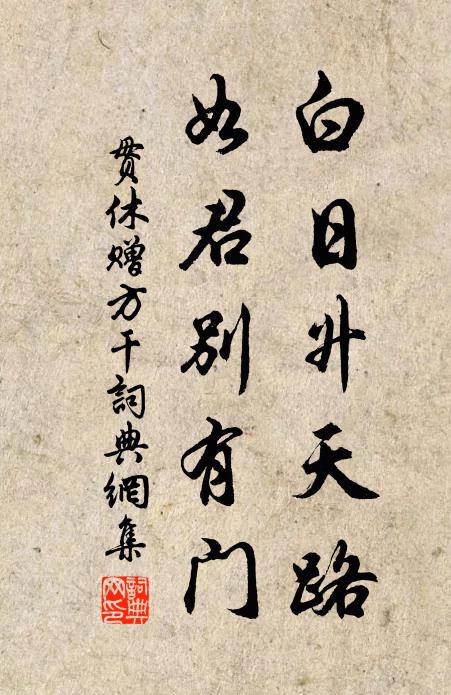 白日升天路
如君别有门
贯休赠方干詞典網集
詞典网印